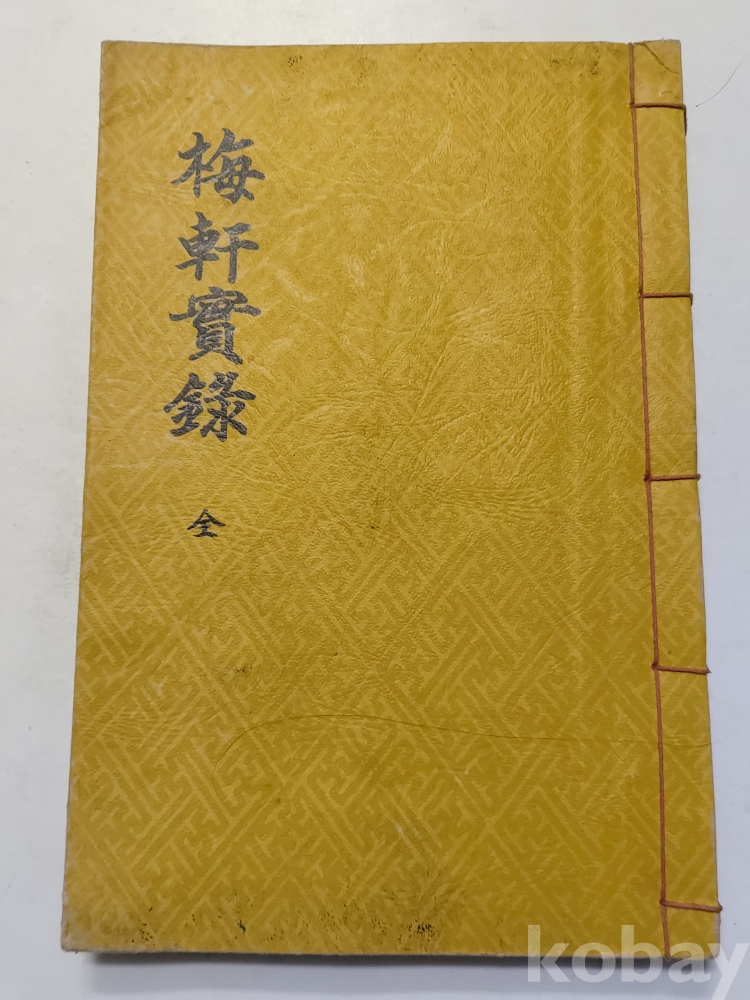 梅軒實錄
全
kobay